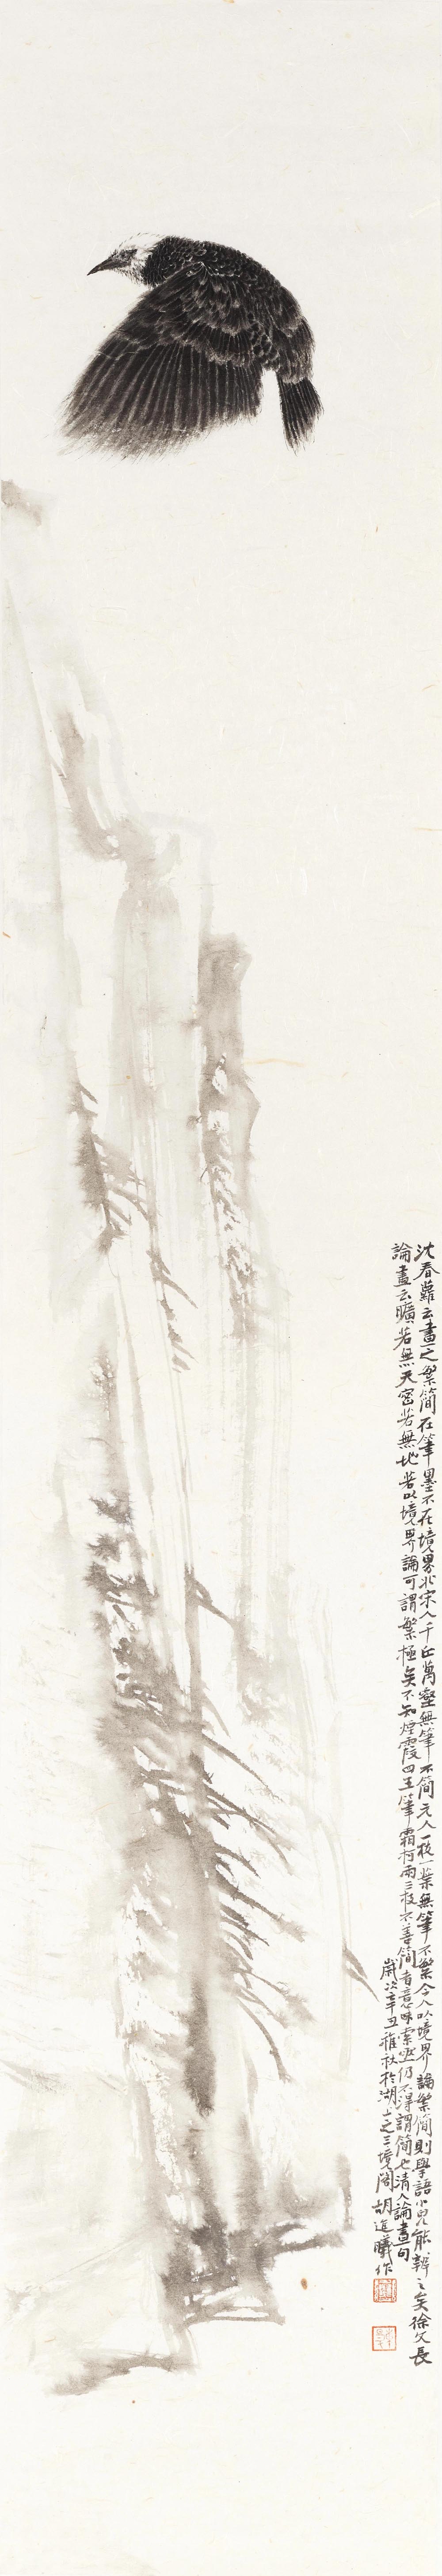 沈春蘿云畫之繁簡在筆墨不在境界北宋人千丘萬壑無筆不簡元人一枝一葉無筆不繁今人以境界論繁簡則學語小兒能辨之矣徐文長
論畫云曠若無天密若無地若以境界論可謂繁極矣不知煙霞四五筆霜柯兩三枝不善簡者意味索然仍不得謂簡也清人論畫句
歲次辛丑稚秋於湖上之三境閣胡道曦作